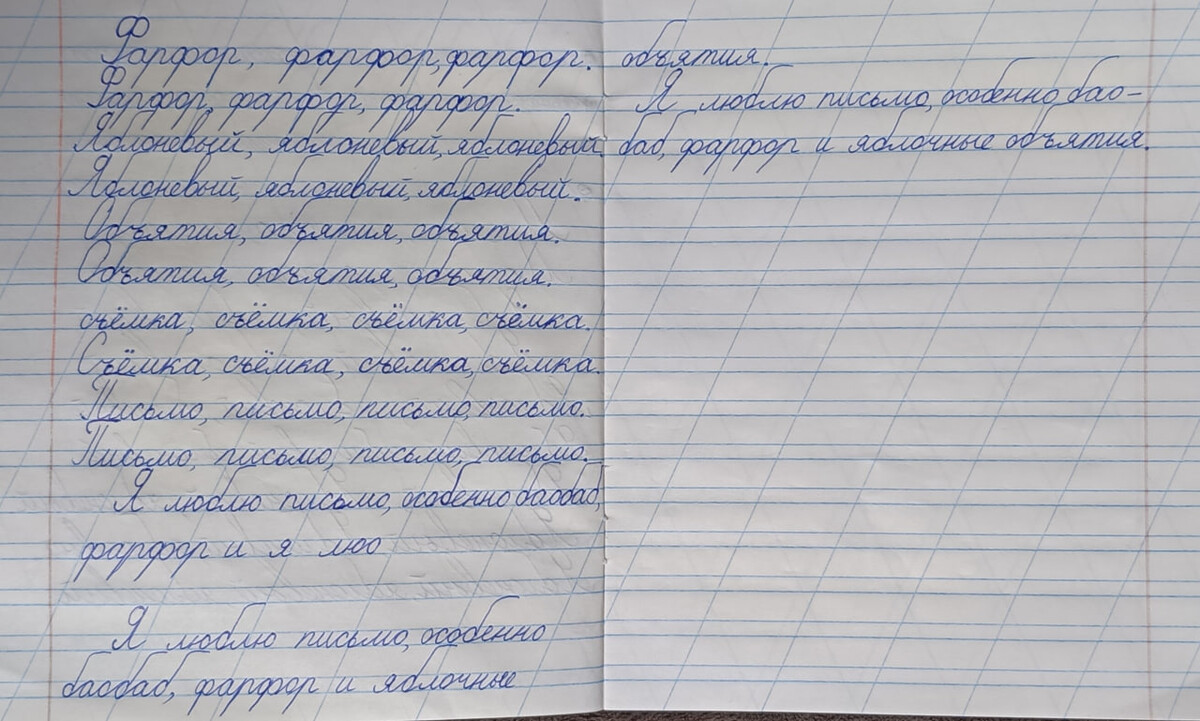 Фарфор, фарфор, фарфор.
Фарфор, фарфор, фарфор.
Яблоневый, яблоневый, яблоневый.
Яблоневый, яблоневый, яблоневый.
Объятия, объятия, объятия.
Объятия, объятия, объятия.
съёмка, съёмка, съёмка, съёмка.
Съёмка, съёмка, съёмка, съёмка.
Письмо, письмо, письмо, письмо.
Письмо, письмо, письмо, письмо.
Я люблю письмо, особенно баобаб,
фарфор и я люо
Я люблю письмо, особенно
баобаб, фарфор и яблочные
объятия.
Я люблю письмо, особенно бао-
баб, фарфор и яблочные объятия.